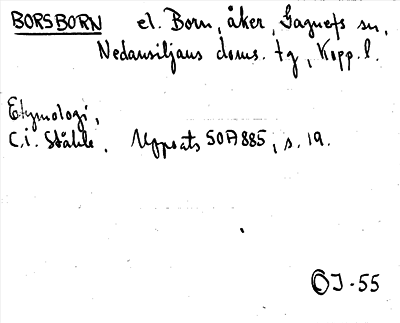 BORSBORN el. Born, åker, Gagnefs sn,
Nedansiljans doms. tg, Kopp. l.
Etymologi,
C.I. Ståhle, Uppsats SOFI 885, s. 19.
OJ-55